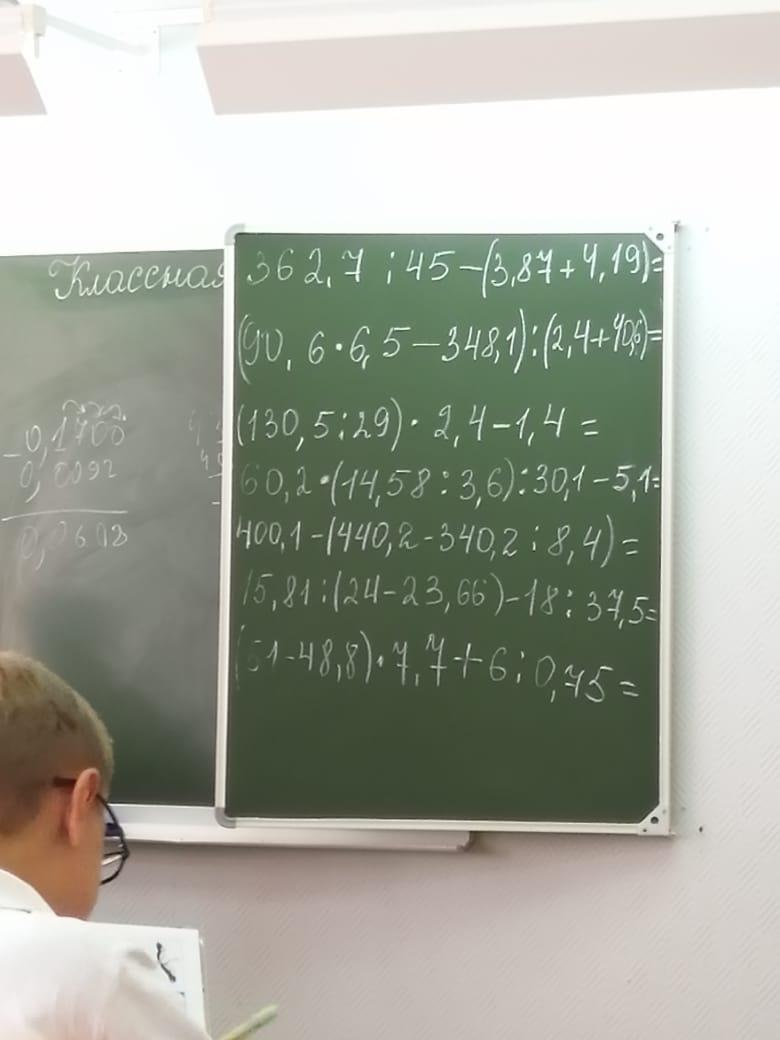 Классная
- 0,1700
0,0092
0,1608
362,7 : 45 - (3,87 + 4,19) =
(90,6 · 6,5 - 348,1) : (2,4 + 40,6) =
(130,5 : 29) · 2,4 - 1,4 =
60,2 · (14,58 : 3,6) : 30,1 - 5,1 =
400,1 - (440,2 - 340,2 : 8,4) =
15,81 : (24 - 23,66) - 18 : 37,5 =
(51 - 48,8) · 7,7 + 6 : 0,75 =